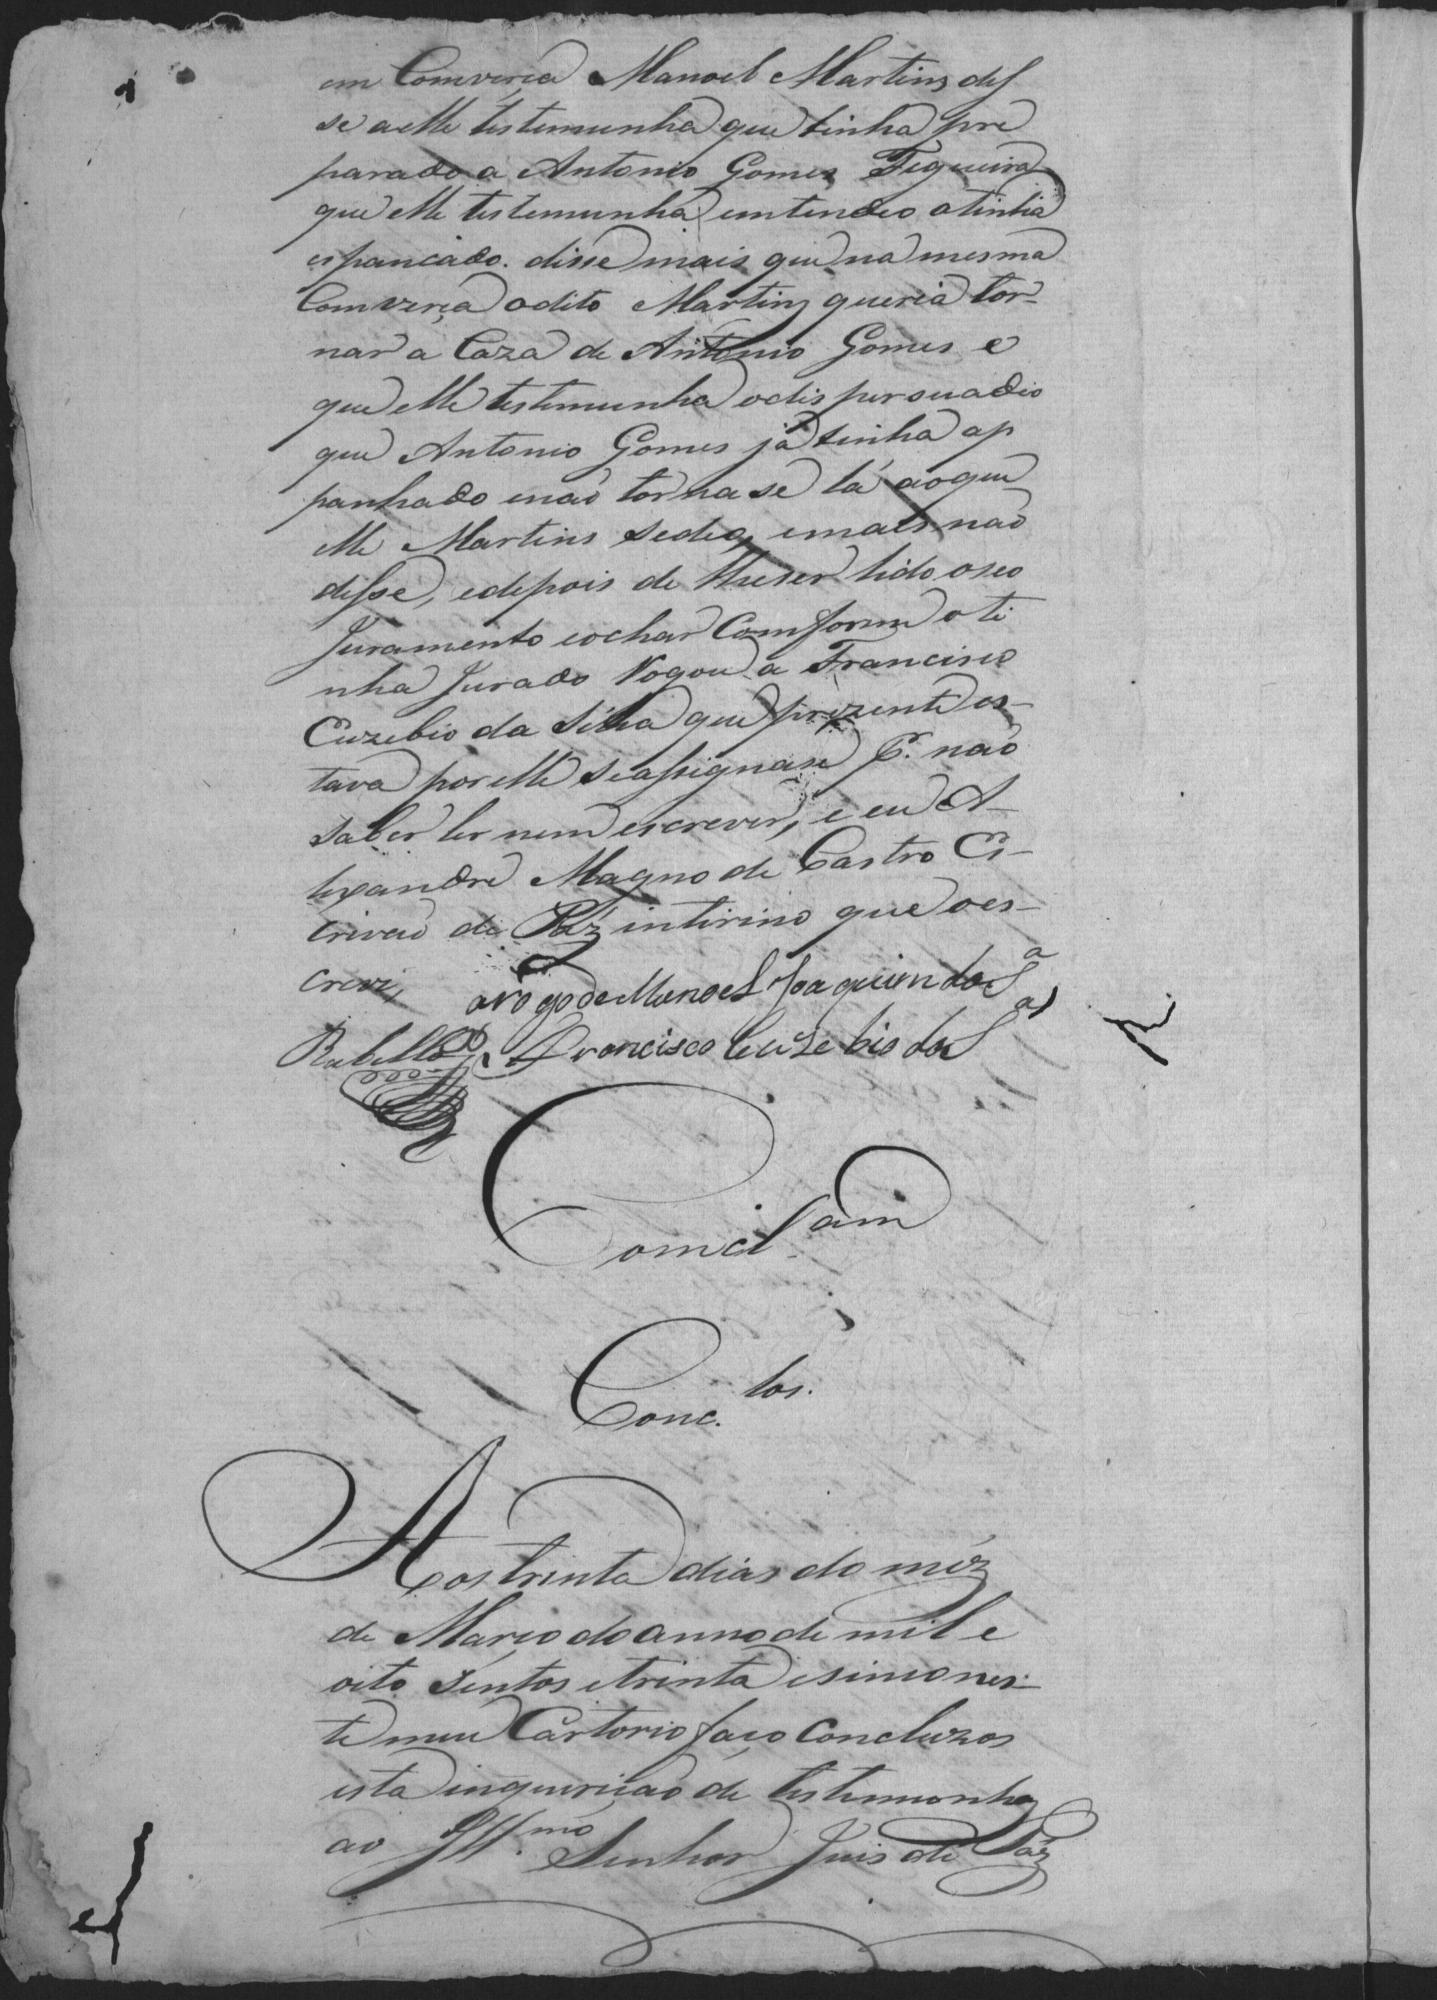 em Comverça Manoel Martins dis
se a elle testemunha que tinha pre
parado a Antonio Gomes Figueira
que elle testemunha entendeo o tinha
espancado. disse mais que na mesma
Comverça o dito Martins queria tor-
nar a Caza de Antonio Gomes e
que elle testemunha o dispersuadio
que Antonio Gomes já tinha ap
panhado e naõ tornase lá ao que
elle Martins sedeo, e mais naõ
disse, e depois de lhe ser lido o seo
Juramento e o char Comforme o ti
nha Jurado Rogou a Francisco
Euzebio da Silva que prezente es-
tava por elle se assignase P.r naõ
saber ler nem escrever, e eu A-
lexandre Magno de Castro Es-
crivaõ de Páz intirino que o es-
crevi,
arogo de Manoel Joaquim da S.a
Rabello Francisco Euzebio da S.a
Comcl.am
Conc.los.
Aos trinta dias do mez
de Março do anno de mil e
oito sentos e trinta e simco nes-
te meu Cartorio faço Concluzos
esta inquiriçaõ de testemonhas
ao Ill.mo Senhor Juis de Páz